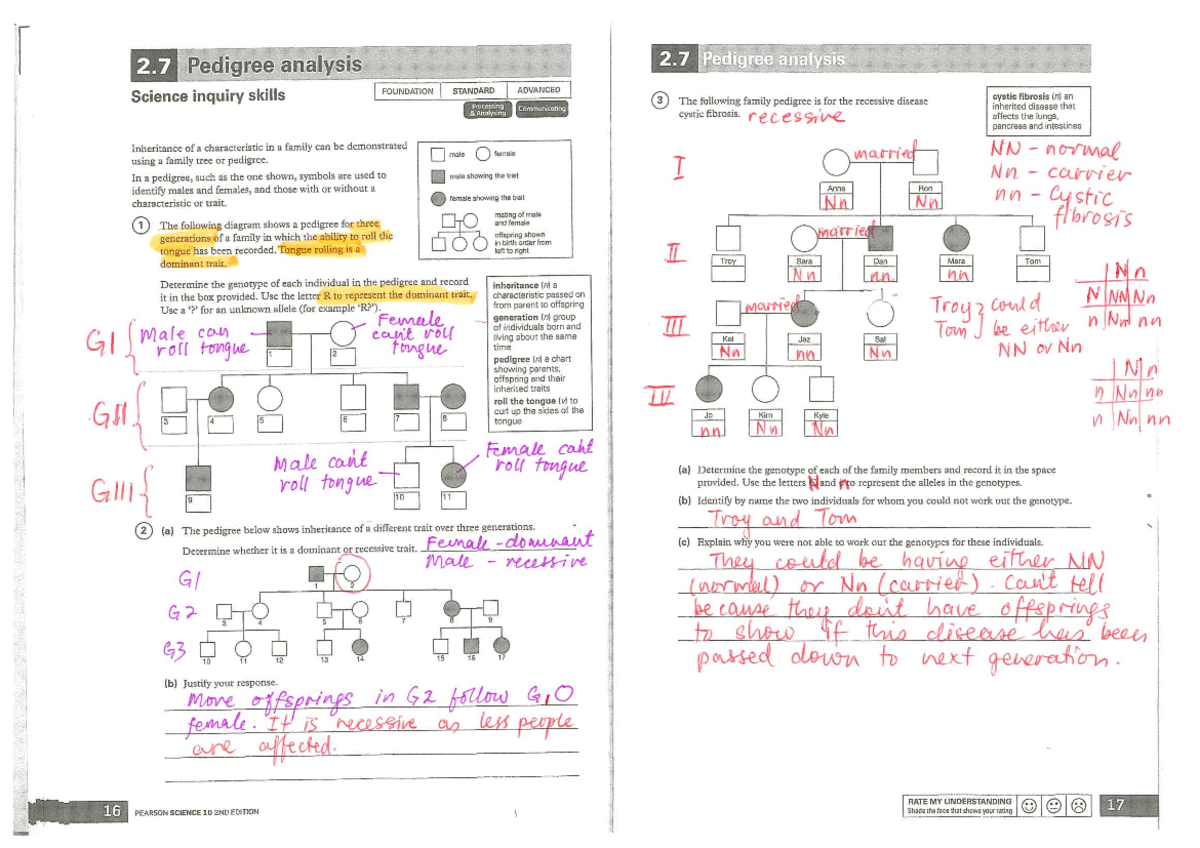 2.7 Pedigree analysis
Science inquiry skills
FOUNDATION STANDARD ADVANCED
Processing & Analysing
Communicating
Inheritance of a characteristic in a family can be demonstrated
using a family tree or pedigree.
In a pedigree, such as the one shown, symbols are used to
identify males and females, and those with or without a
characteristic or trait.
male female
male showing the trait
female showing the trait
mating of male
and female
offspring shown
in birth order from
left to right
1 The following diagram shows a pedigree for three
generations of a family in which the ability to roll the
tongue has been recorded. Tongue rolling is a
dominant trait.
Determine the genotype of each individual in the pedigree and record
it in the box provided. Use the letter R to represent the dominant trait.
Use a '?' for an unknown allele (for example 'R?').
inheritance (n) a
characteristic passed on
from parent to offspring
generation (n) group
of individuals born and
living about the same
time
pedigree (n) a chart
showing parents,
offspring and their
inherited traits
roll the tongue (v) to
curl up the sides of the
tongue
GI
Male can
roll tongue
Female
can't roll
tongue
1 2
GII
3 4 5 6 7 8
GIII
Male can't
roll tongue
Female can't
roll tongue
9 10 11
2 (a) The pedigree below shows inheritance of a different trait over three generations.
Determine whether it is a dominant or recessive trait. Female - dominant
Male - recessive
G1
1 2
G2
3 4 5 6 7 8 9
G3
10 11 12 13 14 15 16 17
(b) Justify your response.
More offsprings in G2 follow G1 O
female. It is recessive as less people
are affected.
16 PEARSON SCIENCE 10 2ND EDITION
2.7 Pedigree analysis
3 The following family pedigree is for the recessive disease
cystic fibrosis. recessive
cystic fibrosis (n) an
inherited disease that
affects the lungs,
pancreas and intestines
NN - normal
Nn - carrier
nn - Cystic
fibrosis
I
married
Anne Ron
Nn Nn
II
married
Troy Sara Dan Mara Tom
Nn nn nn
N n
N NN Nn
n Nn nn
III
married
Kal Jaz Sal
Nn nn Nn
Troy } could
Tom } be either
NN or Nn
N n
n Nn nn
n Nn nn
IIII
Jo Kim Kyle
nn Nn Nn
(a) Determine the genotype of each of the family members and record it in the space
provided. Use the letters N and n to represent the alleles in the genotypes.
(b) Identify by name the two individuals for whom you could not work out the genotype.
Troy and Tom
(c) Explain why you were not able to work out the genotypes for these individuals.
They could be having either NN
(normal) or Nn (carrier). Can't tell
because they don't have offsprings
to show if this disease has been
passed down to next generation.
RATE MY UNDERSTANDING
Shade the face that shows your rating
17